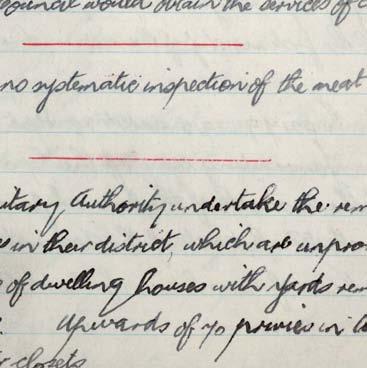 Council would obtain the services of
no systematic inspection of the meat
itary Authority undertake the rem
in their district, which are unpro
of dwelling houses with yards rem
upwards of 70 privies in
closets